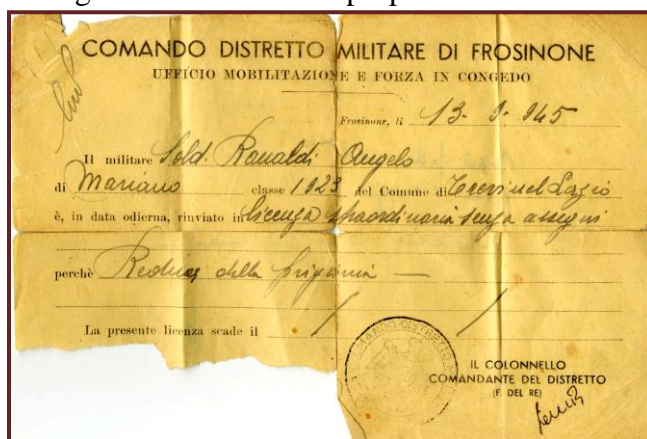 COMANDO DISTRETTO MILITARE DI FROSINONE
UFFICIO MOBILITAZIONE E FORZA IN CONGEDO
Frosinone, li 13-9-945
Il militare Sold. Ranaldi Angelo
di Mariano classe 1923 del Comune di Trevi nel Lazio
è, in data odierna, rinviato in licenza straordinaria senza assegni
perchè Reduce della prigionia —
La presente licenza scade il / /
COMANDO DISTRETTO
IL COLONNELLO
COMANDANTE DEL DISTRETTO
(F. DEL RE)